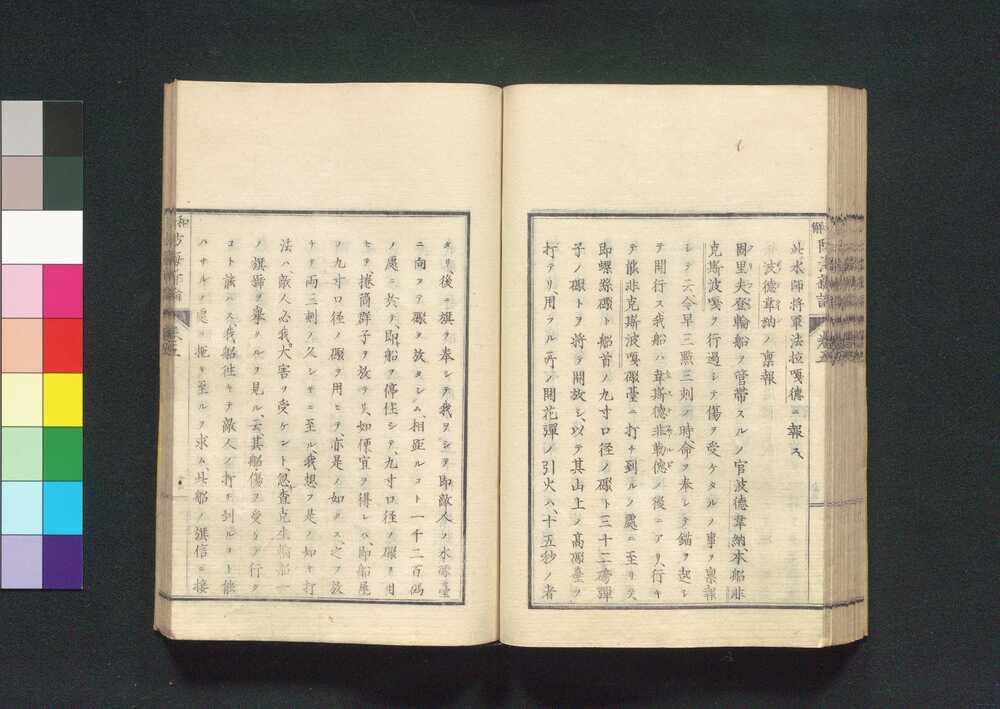 此水師将軍法拉嘎徳ニ報ス、
波徳韋納ノ稟報
圖里夫登輪船ヲ管帯スルノ官波徳韋納、本船非
克斯波嘎ヲ行過シテ傷ヲ受ケタルノ事ヲ稟報
シテ云今早三點三刻ノ時、命ヲ奉シテ錨ヲ起シ
テ開行ス我船ハ韋斯徳非勒徳ノ後ニアリ、行キ
テ能非克斯波嘎礮臺ニ打チ到ルノ處ニ至リテ、
即螺絲礮ト船首ノ九寸口径ノ礮ト三十二磅弾
子ノ礮トヲ将テ開放シ、以テ其山上ノ高礮臺ヲ
打テリ、用フル所ノ開花彈ノ引火ハ、十五秒ノ者
ナリ、後ニ旗ヲ奉シテ我ヲシテ即敵人ノ水礮臺
ニ向ヲテ礮ヲ放タシム、相距ルコト一千二百碼
ノ處ニ於テ、即船ヲ停住シテ、九寸口径ノ礮ヲ用
ヒテ、捲筒群子ヲ放テリ、如便宜ヲ得レハ、即船尾
ノ九寸口径ノ礮ヲ用ヒテ亦是ノ如クス、之ヲ放
ケテ両三刺ノ久シキニ至ル、我想フ是ノ如キ打
法ハ敵人必我大害ヲ受ケント、忽査克生輪船
ノ旗號ヲ擧クルヲ見ル、云其船傷ヲ受ケテ行ク
コト能ハス、我船往キテ敵人ノ打チ到ルコト能
ハサルノ處ニ拖キ至ルヲ求ム、其船ノ旗信ニ接